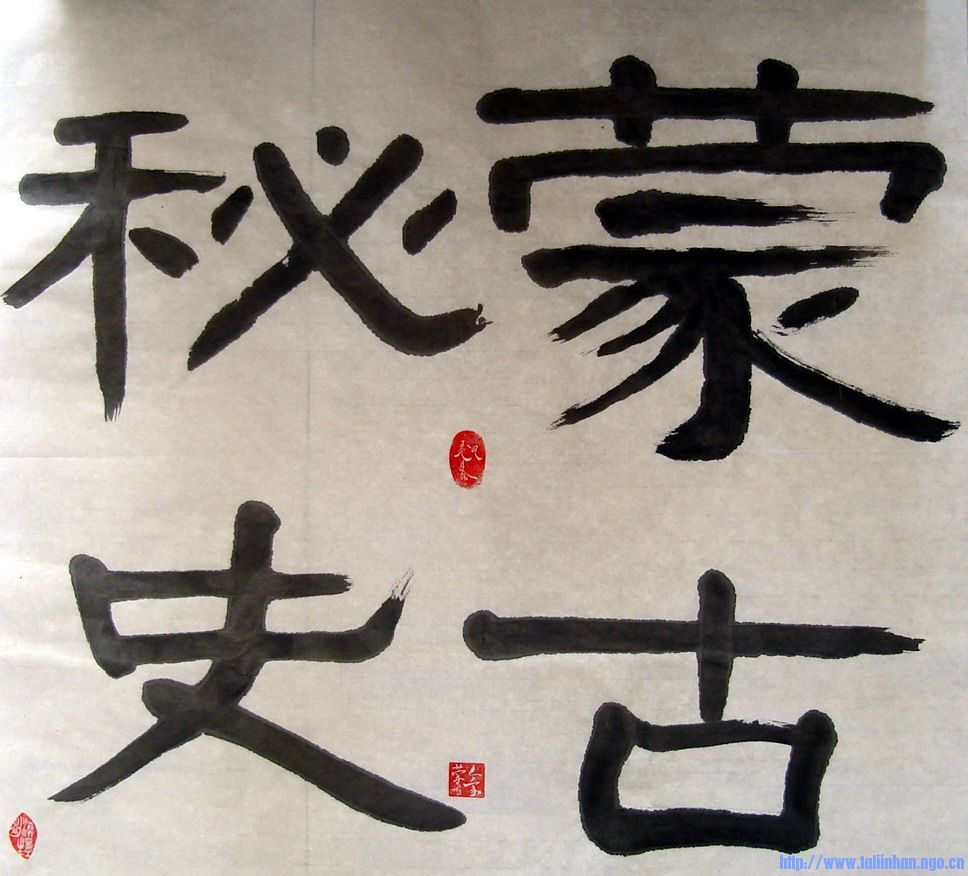 蒙古
秘史
http://www.taliinhan.ngo.cn